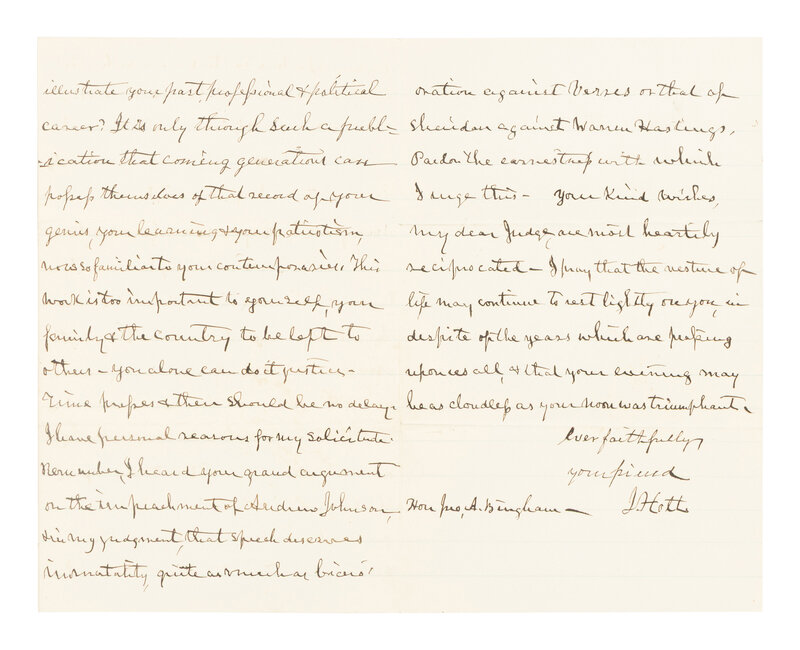 illustrate your past, professional & political
career? It is only through such a publ-
-ication that coming generations can
possess themselves of that record of your
genius, your learning & your patriotism,
now so familiar to your contemporaries. This
work is too important to yourself, your
family & the country to be left to
others – you alone can do it justice –
Time presses & there should be no delay –
I have personal reasons for my solicitude.
Remember, I heard your grand argument
on the impeachment of Andrew Johnson,
& in my judgment, that speech deserves
immortality, quite as much as Cicero's
oration against Verres or that of
Sheridan against Warren Hastings.
Pardon the earnestness with which
I urge this – Your kind wishes,
my dear Judge, are most heartily
reciprocated – I pray that the vesture of
life may continue to rest lightly on you, in
despite of the years which are pressing
upon us all, & that your evening may
be as cloudless as your noon was triumphant –
Ever faithfully
your friend
J. Holt
Hon Jno, A. Bingham –